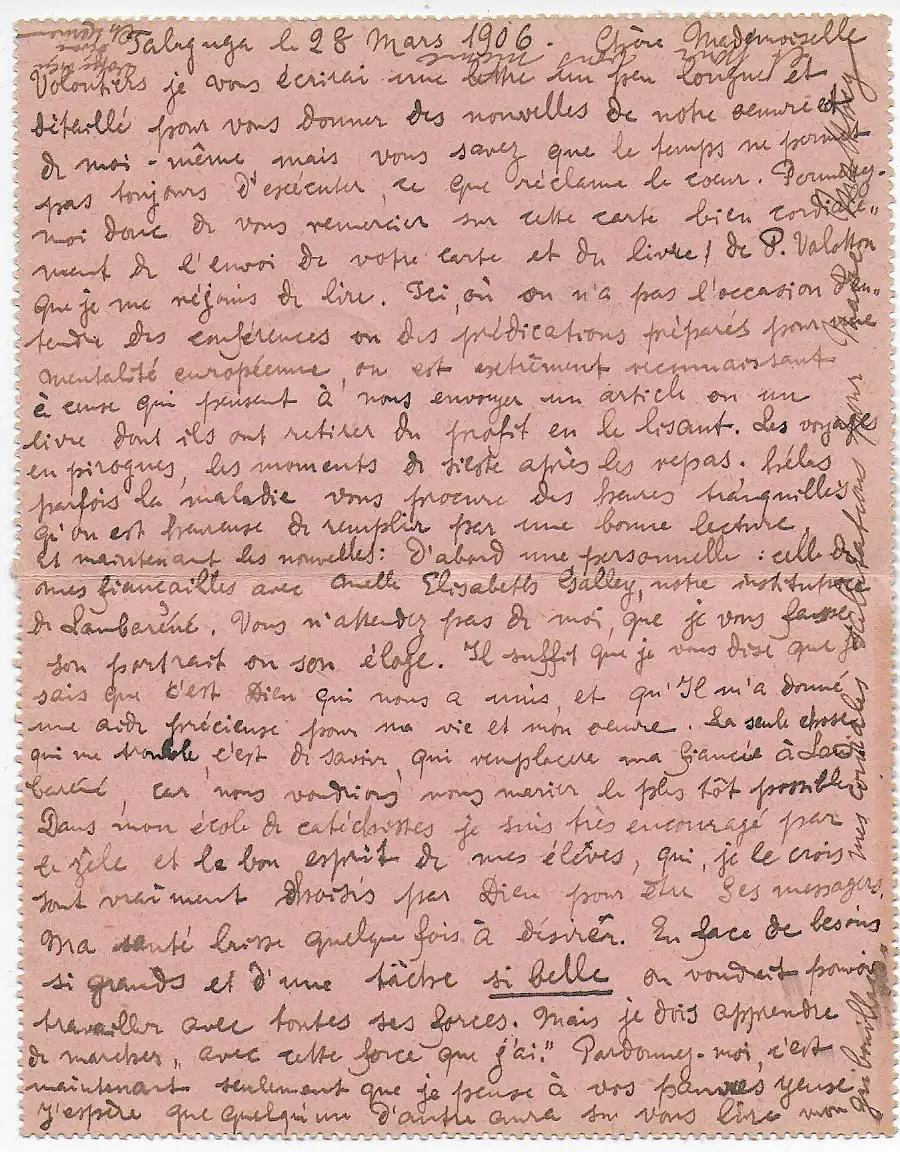 Talaguga le 28 Mars 1906. Chère Mademoiselle
Volontiers je vous écrirai une lettre un peu longue et
détaillé pour vous donner des nouvelles de notre oeuvre et
de moi-même mais vous savez que le temps ne permet
pas toujours d'exécuter, ce que réclame le coeur. Permettez-
moi donc de vous remercier sur cette carte bien cordiale"
ment de l'envoi de votre carte et du livre de P. Valotton
que je me réjouis de lire. Ici, où on n'a pas l'occasion d'en"
tendre des conférences ou des prédications préparés pour une
mentalité européenne, on est extrêmement reconnaissant
à ceux qui pensent à nous envoyer un article ou un
livre dont ils ont retirer du profit en le lisant. Les voyages
en pirogues, les moments de sieste après les repas. hélas
parfois la maladie vous procure des heures tranquilles
qu'on est heureuse de remplir par une bonne lecture.
Et maintenant les nouvelles: D'abord une personnelle: celle de
mes fiancailles avec Melle Elisabeth Galley, notre institutrice
de Lambaréné. Vous n'attendez pas de moi, que je vous fasse
son portrait ou son éloge. Il suffit que je vous dise que je
sais que c'est Dieu qui nous a unis, et qu'Il m'a donné
une aide précieuse pour ma vie et mon oeuvre. La seule chose
qui me trouble, c'est de savoir, qui remplacera ma fiancée à Lam
baréné, car nous voudrions nous marier le plus tôt possible
Dans mon école de catéchistes je suis très encouragé par
le zèle et le bon esprit de mes élèves, qui, je le crois
sont vraiment choisis par Dieu pour être Ses messagers.
Ma santé laisse quelque fois à désirer. En face de besoins
si grands et d'une tâche si belle on voudrait pouvoir
travailler avec toutes ses forces. Mais je dois apprendre
de marcher "avec cette force que j'ai." Pardonnez-moi, c'est
maintenant seulement que je pense à vos pauvres yeux.
J'espère que quelqu'un d'autre aura su vous lire mon
gribouillage"
mes cordiales salutations pour